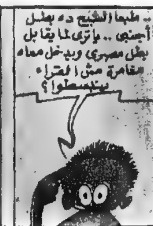 .. طبعا الشيخ ده بطل
أجنبى .. يا ترى لما يقابل
بطل مصرى ويدخل معاه
مغامرة مش القراء
يتبسطوا؟